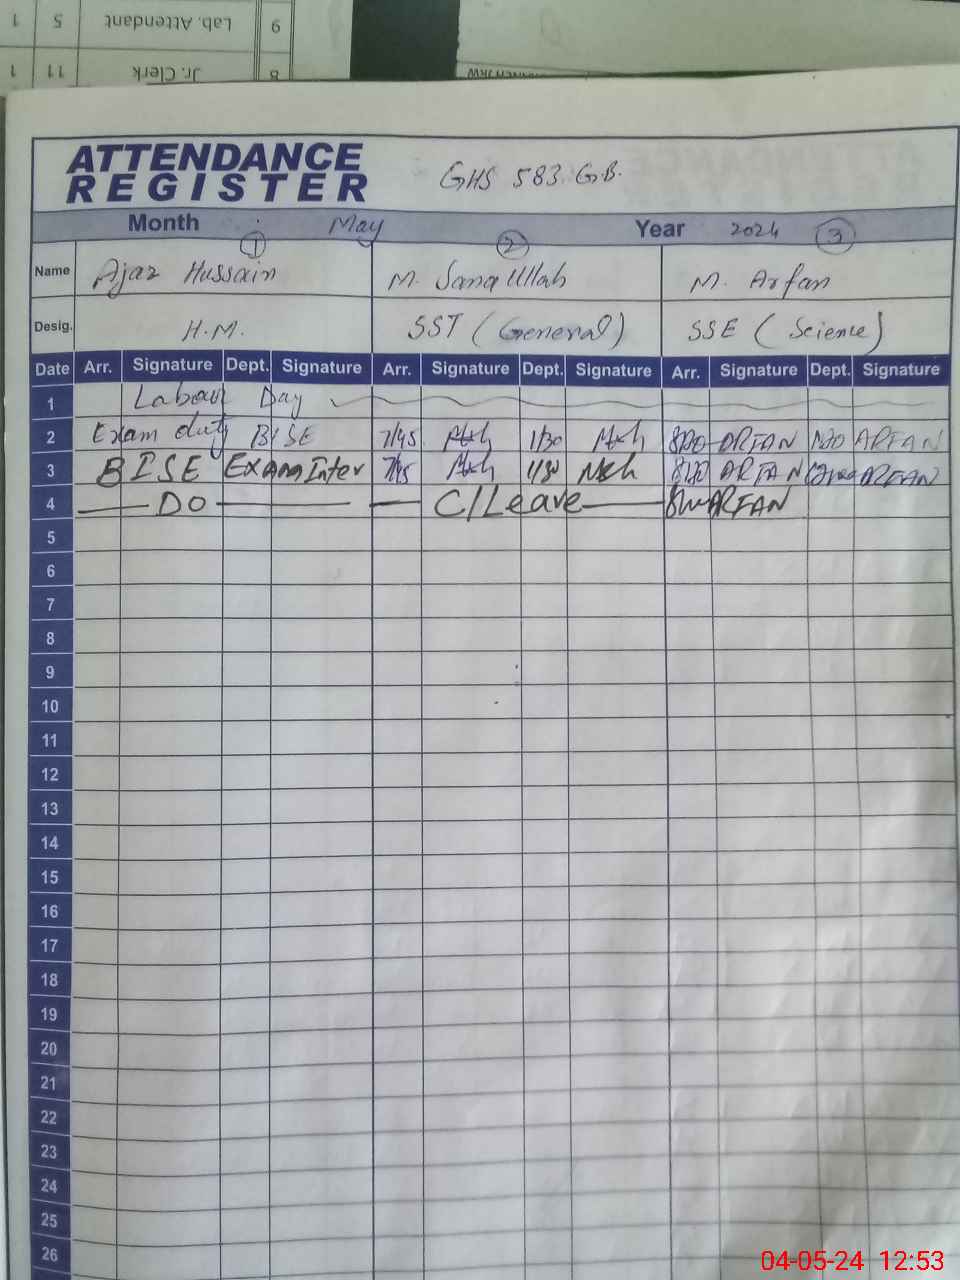 9 Lab. Attendant 5 1
8 Jr. Clerk 11 1
ATTENDANCE
REGISTER
GHS 583 G.B.
Month May Year 2024
1 2 3
Name Ajaz Hussain M. Sana Ullah M. Arfan
Desig. H.M. SST (General) SSE (Science)
Date Arr. Signature Dept. Signature Arr. Signature Dept. Signature Arr. Signature Dept. Signature
1 Labour Day
2 Exam duty BISE 7/45 1/30 ARFAN ARFAN
3 BISE Exam Inter 7/45 1/30 ARFAN ARFAN
4 Do C/Leave ARFAN
5
6
7
8
9
10
11
12
13
14
15
16
17
18
19
20
21
22
23
24
25
26
04-05-24 12:53